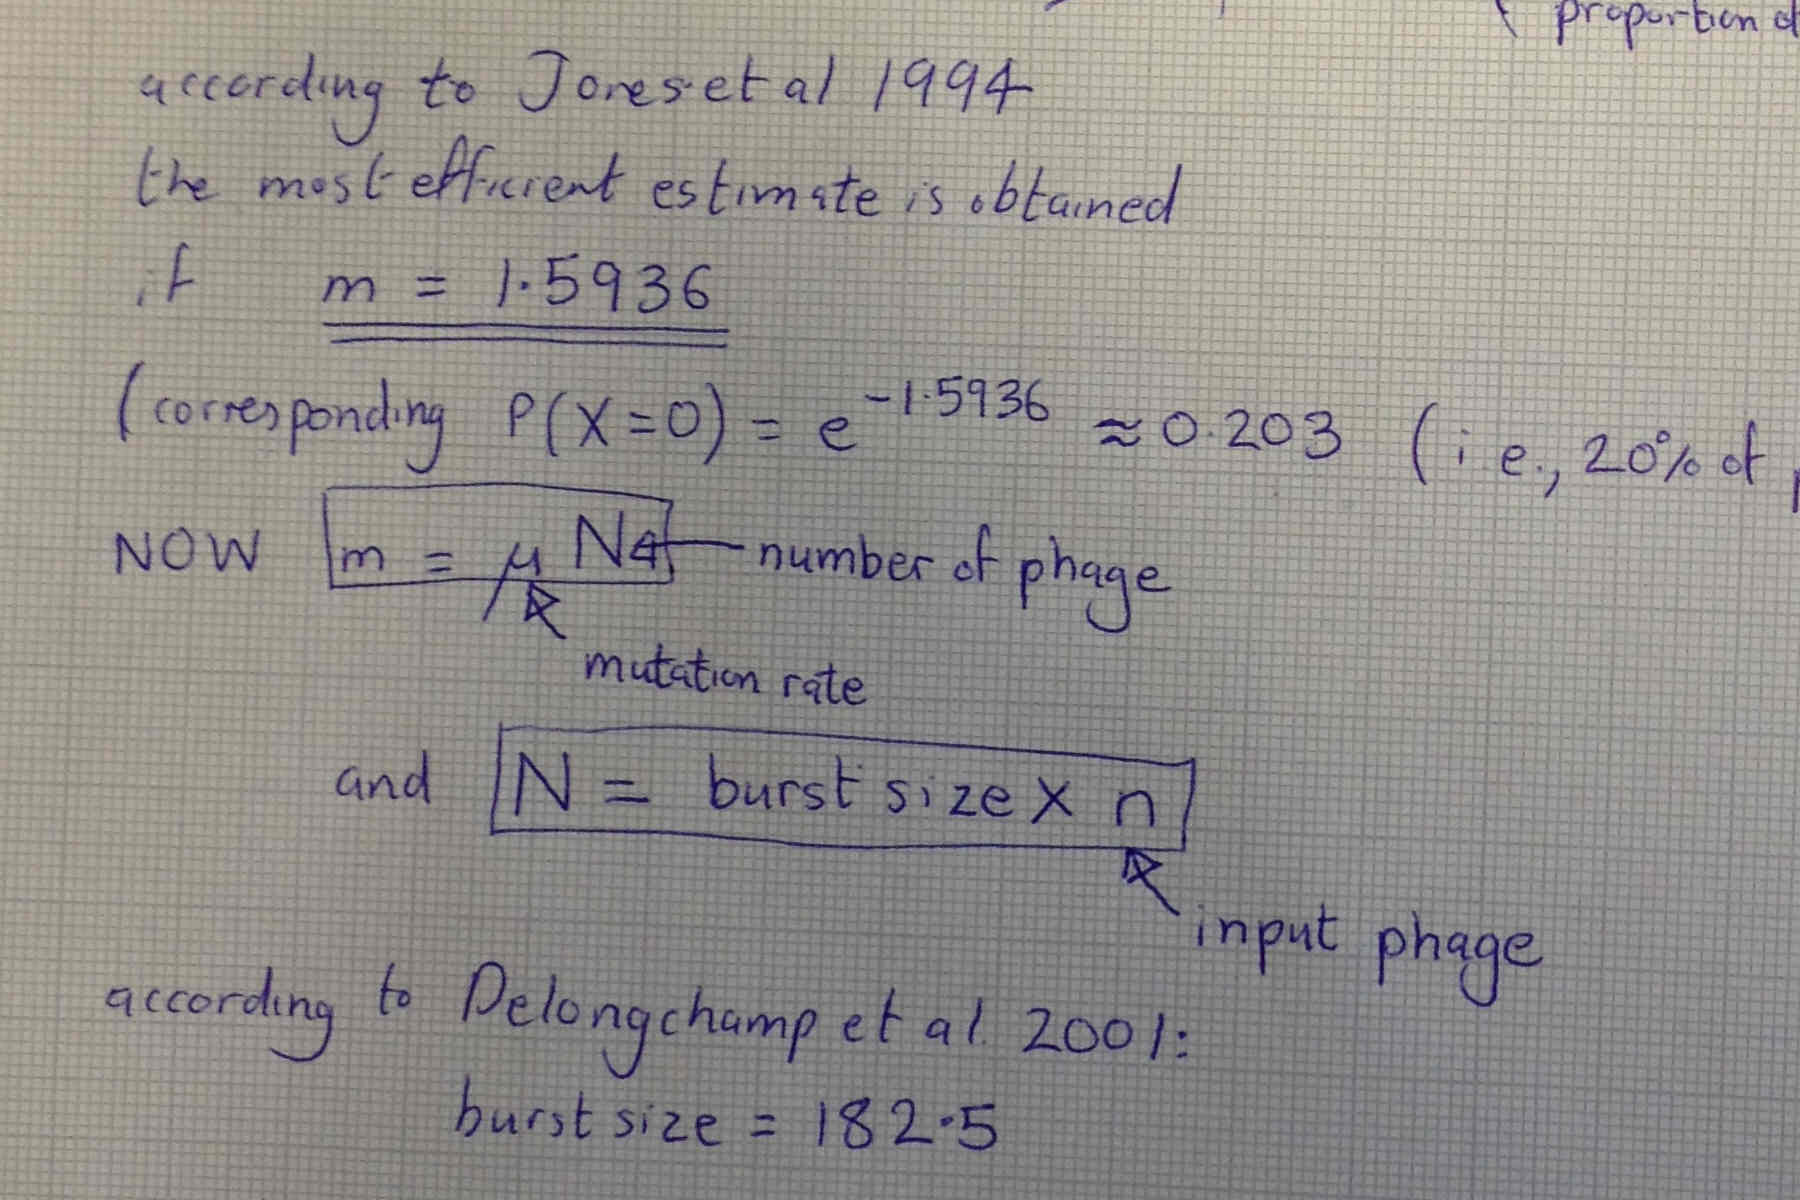 proportion of
according to Jones et al 1994
the most efficient estimate is obtained
if m = 1.5936
(corresponding P(X=0) = e^-1.5936 ≈ 0.203 (i.e., 20% of
NOW m = μN number of phage
mutation rate
and N = burst size × n
input phage
according to Delongchamp et al. 2001:
burst size = 182.5